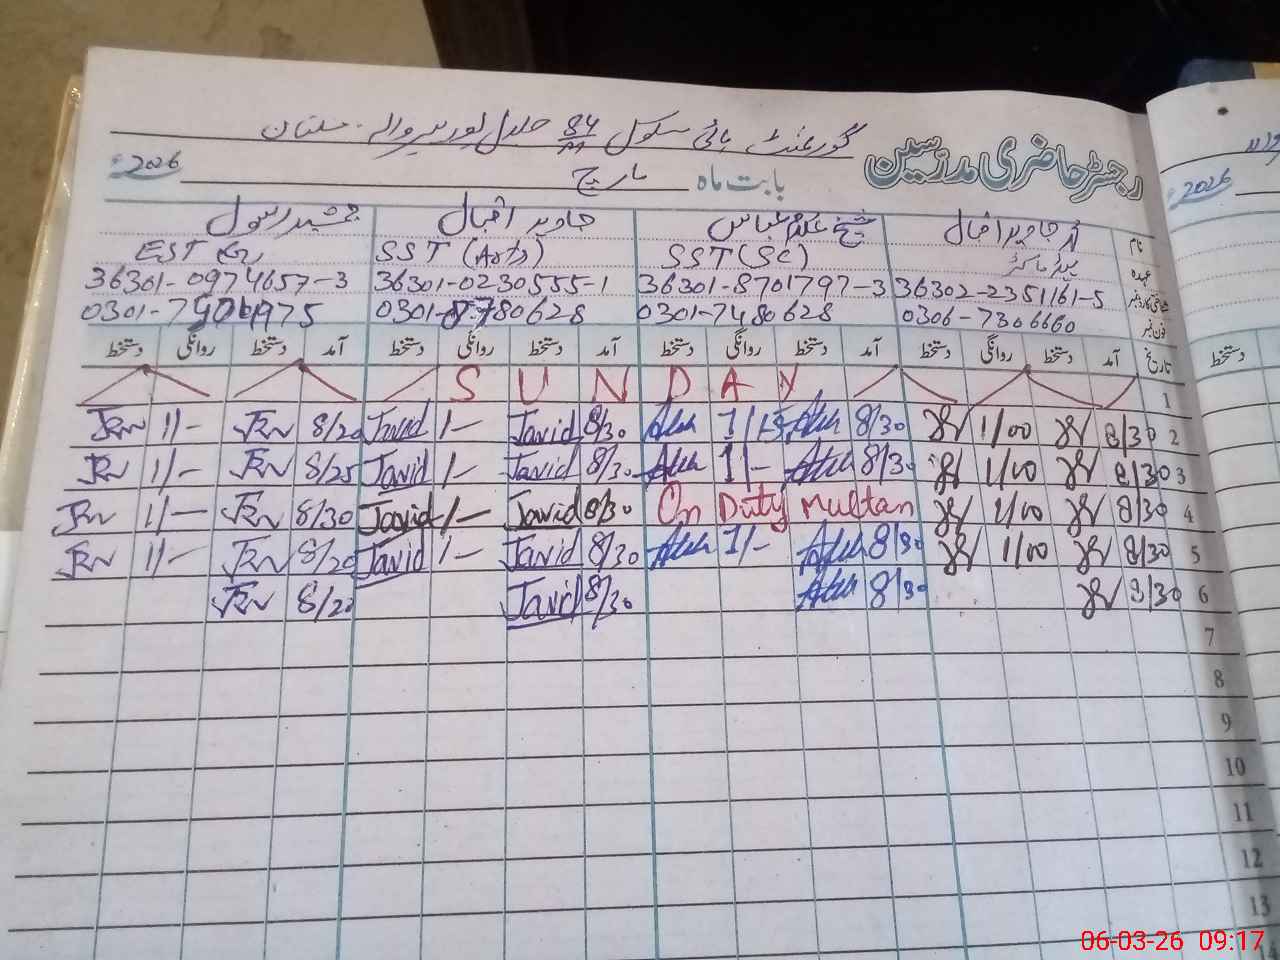 رجسٹر حاضری مدرسین گورنمنٹ ہائی سکول 84/M جلال پور پیروالہ ملتان
بابت ماہ مارچ 2026
2026
نام جاوید اقبال شیخ غلام عباس جاوید اقبال جمشید رسول
عہدہ ہیڈ ماسٹر SST (Sc) SST (Arts) EST
شناختی کارڈ نمبر 36302-2351161-5 36301-8701797-3 36301-0230555-1 36301-0974657-3
فون نمبر 0306-7306660 0301-7480628 0301-8780628
تاریخ آمد دستخط روانگی دستخط آمد دستخط روانگی دستخط آمد دستخط روانگی دستخط آمد دستخط روانگی دستخط
دستخط
1 SUNDAY
2 8/30 1/00 8/30 1/15 8/30 Javid 1/- Javid 8/20 1/-
3 8/30 1/00 8/30 1/- 8/30 Javid 1/- Javid 8/25 1/-
4 8/30 1/00 On Duty Multan 8/30 Javid 1/- Javid 8/30 1/-
5 8/30 1/00 8/30 1/- 8/30 Javid 1/- Javid 8/20 1/-
6 8/30 8/30 8/30 Javid 8/20
7
8
9
10
11
12
13
14
06-03-26 09:17